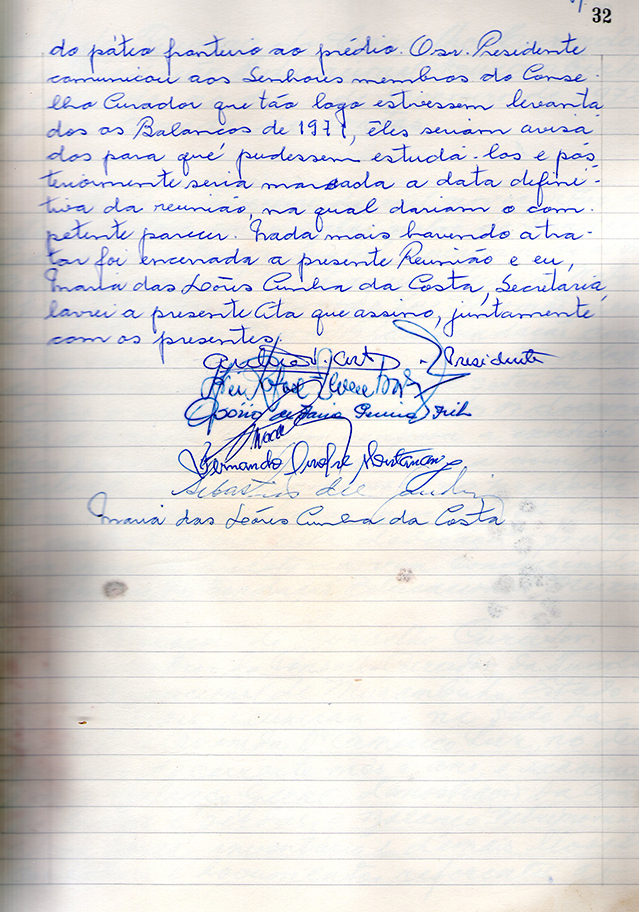 32
do pátio fronteiro ao prédio. O sr. Presidente
comunicou aos Senhores membros do Conse-
lho Curador que tão logo estivessem levanta
dos os Balanços de 1971, êles seriam avisa-
dos para que pudessem estudá-los e pos
teriormente seria marcada a data defini-
tiva da reunião, na qual dariam o com-
petente parecer. Nada mais havendo a tra-
tar foi encerrada a presente Reunião e eu,
Maria das Dôres Cunha da Costa, Secretária,
lavrei a presente Ata que assino, juntamente
com os presentes.
Presidente
Fernando
Sebastião
Maria das Dôres Cunha da Costa